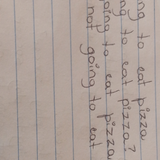 ng to eat pizza
ng to eat pizza?
oing to eat pizza
not going to eat